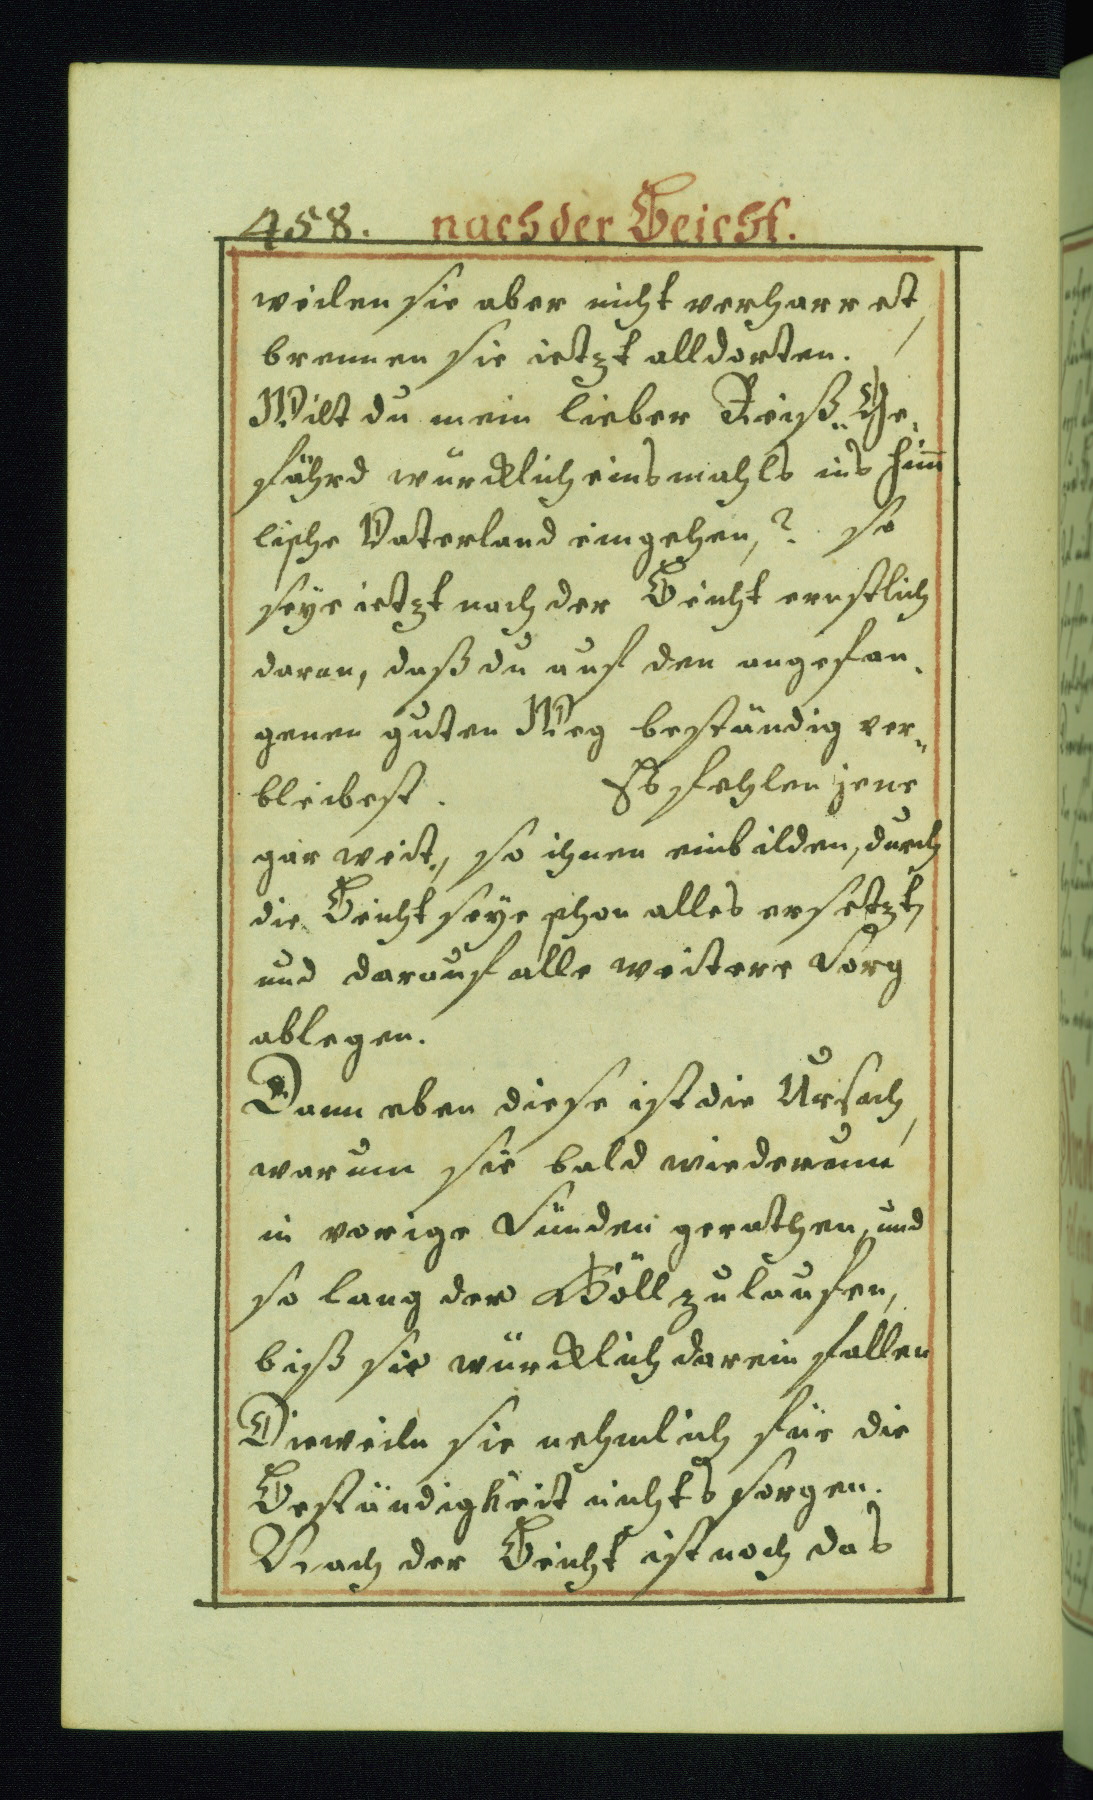 458. nach der Beicht.
weilen sie aber nicht verharret,
brennen sie ietzt alldorten.
Wilt du mein lieber Reiß„Ge„
fährd würcklich einsmahls ins him̅
lische Vaterland eingehen,? so
seÿe ietzt nach der Beicht ernstlich
daran, daß du auf den angefan„
genen guten Weg beständig ver„
bleibest. Es fehlen jene
gar weit, so ihnen einbilden, durch
die Beicht seÿe schon alles ersetzt,
und darauf alle weitere Sorg
ablegen.
Dann eben diese ist die Ursach,
warum sie bald wiederum
in vorige Sünden gerathen, und
so lang der Höll zulaufen,
biß sie würcklich darein fallen
Dieweiln sie nehmlich für die
Beständigkeit nichts sorgen.
Nach der Beicht ist noch das